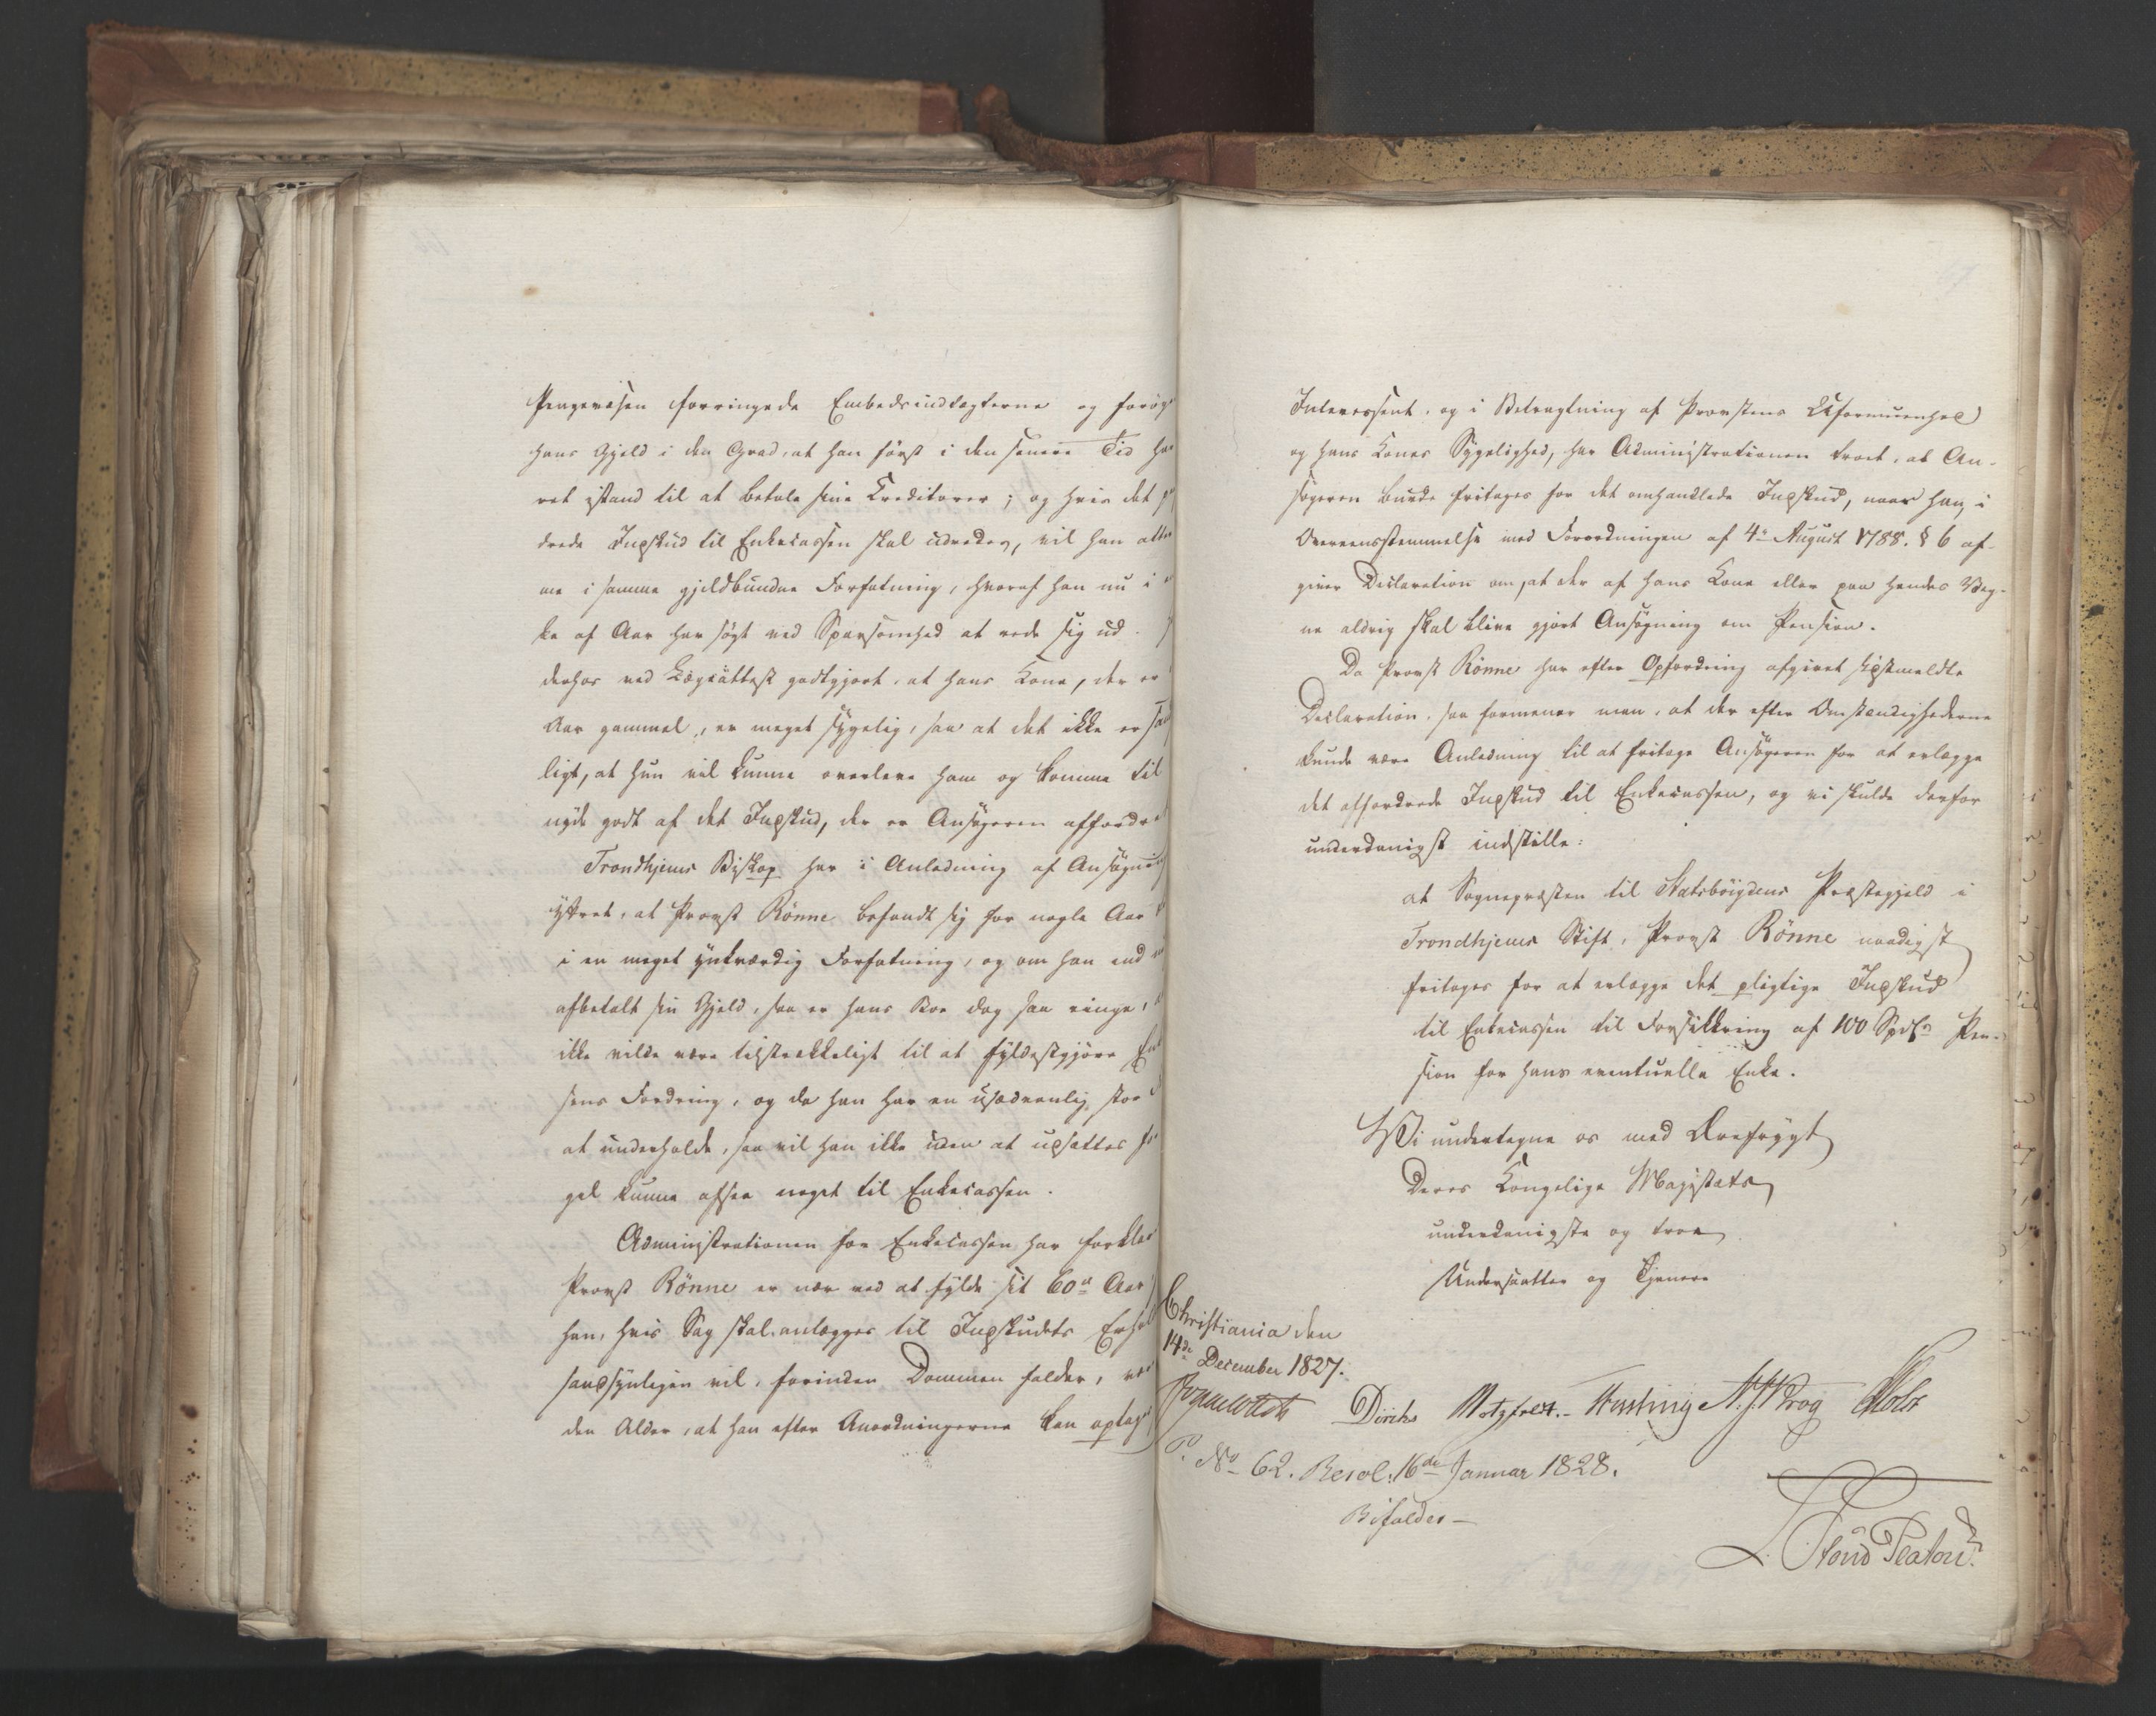 Pengevæsen forringede Embedsindtægterne og forøge
hans Gjeld i den Grad, at han først i den senere Tid ha
vet istand til at betale sine Creditorer; og hvis det
drede Indskud til Enkecassen skal udredes, vil han atter
me i samme gjeldbundne Forfatning, hvoraf han nu i
ke af Aar har søgt ved Sparsomhed at rede sig ud.
derhos ved Lægeattest godtgjort, at hans Kone, der er
Aar gammel, er meget sygelig, saa at det ikke er san
ligt, at hun vil kunne overleve ham og komme til
nyde godt af det Indskud, der er Ansøgeren affordret
Trondhjems Biskop har i Anledning af Ansøgning
yttret, at Provst Rönne befandt sig for nogle Aar
i en meget ynkværdig Forfatning, og om han end
afbetalt sin Gjeld, saa er hans Boe dog saa ringe,
ikke vilde være tilstrækkeligt til at fyldestgjøre Enk
sens Fordring, og da han har en usædvanlig stor
at underholde, saa vil han ikke uden at udsættes for
gel kunne afsee noget til Enkecassen.
Administrationen for Enkecassen har forklar
Provst Rönne er nær ved at fylde sit 60de Aar
han, hvis Sag skal anlægges til Indskudets Erhol
sandsynligen vil, forinden Dommen falder, væ
den Alder, at han efter Anordningerne kan optages
Interessent, og i Betragtning af Provstens Uformuenhed
og hans Kones Sygelighed, har Administrationen troet, at An-
søgeren burde fritages for det omhandlede Indskud, naar han i
Overeensstemmelse med Forordningen af 4de August 1788. § 6 af-
giver Declaration om, at der af hans Kone eller paa hendes Veg-
ne aldrig skal blive gjort Ansøgning om Pension.
Da Provst Rönne har efter Opfordring afgivet sidstmeldte
Declaration, saa formener man, at der efter Omstændighederne
kunde være Anledning til at fritage Ansøgeren for at erlægge
det affordrede Indskud til Enkecassen, og vi skulde derfor
underdanigst indstille:
at Sognepræsten til Statsbøigdens Præstegjeld i
Trondhjems Stift, Provst Rönne naadigst
fritages for at erlægge det pligtige Indskud
til Enkecassen til Forsikkring af 100 Spdlr Pen-
sion for hans eventuelle Enke.
Vi undertegne os med Ærefrygt
Deres Kongelige Majestæts
underdanigste og troe
Undersaatter og Tjenere
Christiania den
14de December 1827.
Diriks Motzfeldt. N. J. Krog Holst
P. No 62. Resol: 16de Januar 1828.
Bifaldes –